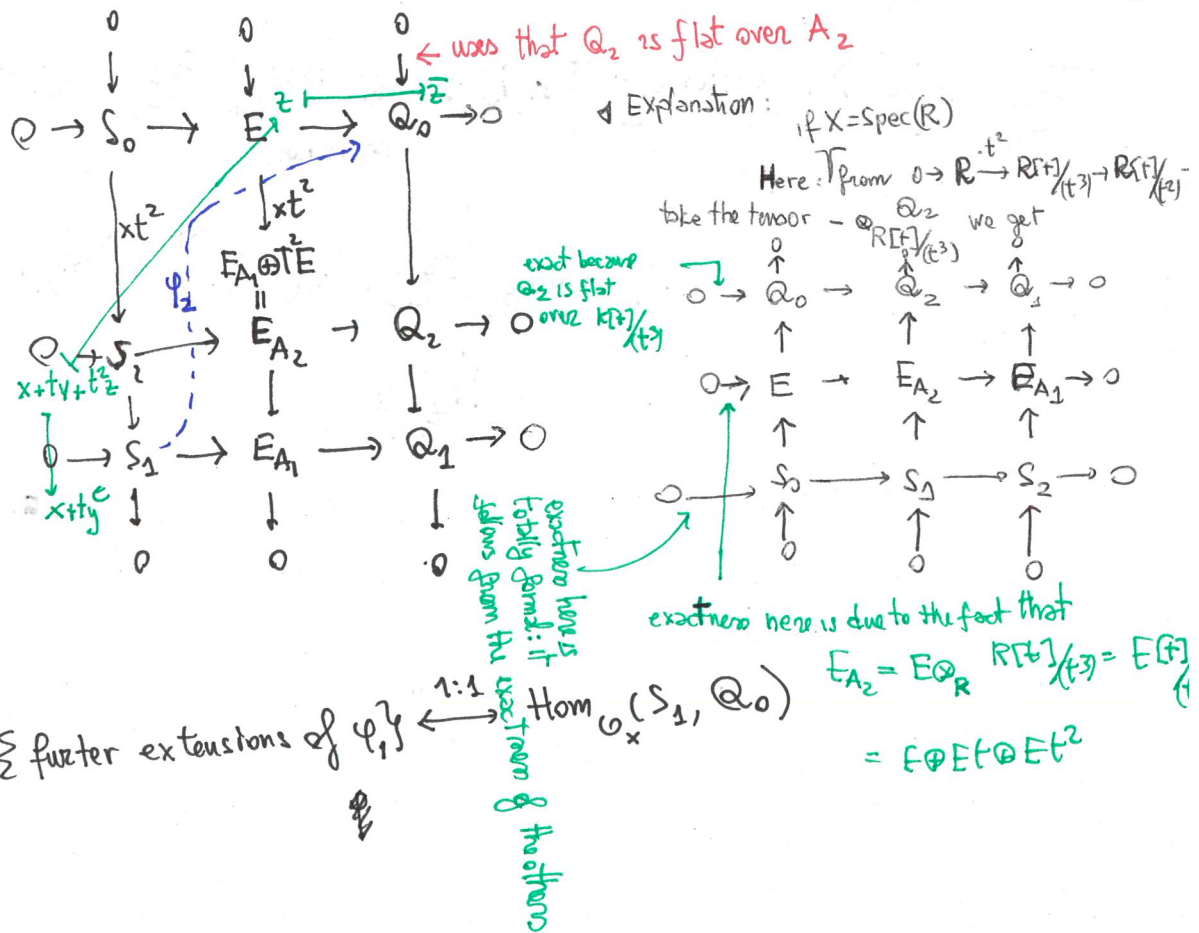 0 0 0
← uses that Q₂ is flat over A₂
↓ ↓ z ↦ z̄ ↓
0 → S₀ → E → Q₀ → 0
×t² ×t²
φ₂
E_{A₁} ⊕ T²E
=
0 → S₂ → E_{A₂} → Q₂ → 0
x+ty+t²z
0 → S₁ → E_{A₁} → Q₁ → 0
x+ty
0 0 0
Explanation:
if X=Spec(R)
Here: from 0 → R →^{·t²} R[t]/(t³) → R[t]/(t²) -
take the tensor - ⊗_{R[t]/(t³)} Q₂ we get
exact because
Q₂ is flat
over k[t]/(t³)
0 0 0
↑ ↑ ↑
0 → Q₀ → Q₂ → Q₁ → 0
↑ ↑ ↑
0 → E → E_{A₂} → E_{A₁} → 0
↑ ↑ ↑
0 → S₀ → S₁ → S₂ → 0
↑ ↑ ↑
0 0 0
exactness here is
totally formal: it
follows from the exactness of the others
exactness here is due to the fact that
E_{A₂} = E⊗_R R[t]/(t³) = E[t]/(t
= E⊕Et⊕Et²
{ furter extensions of φ₁} ←^{1:1}→ Hom_{O_x}(S₁, Q₀)